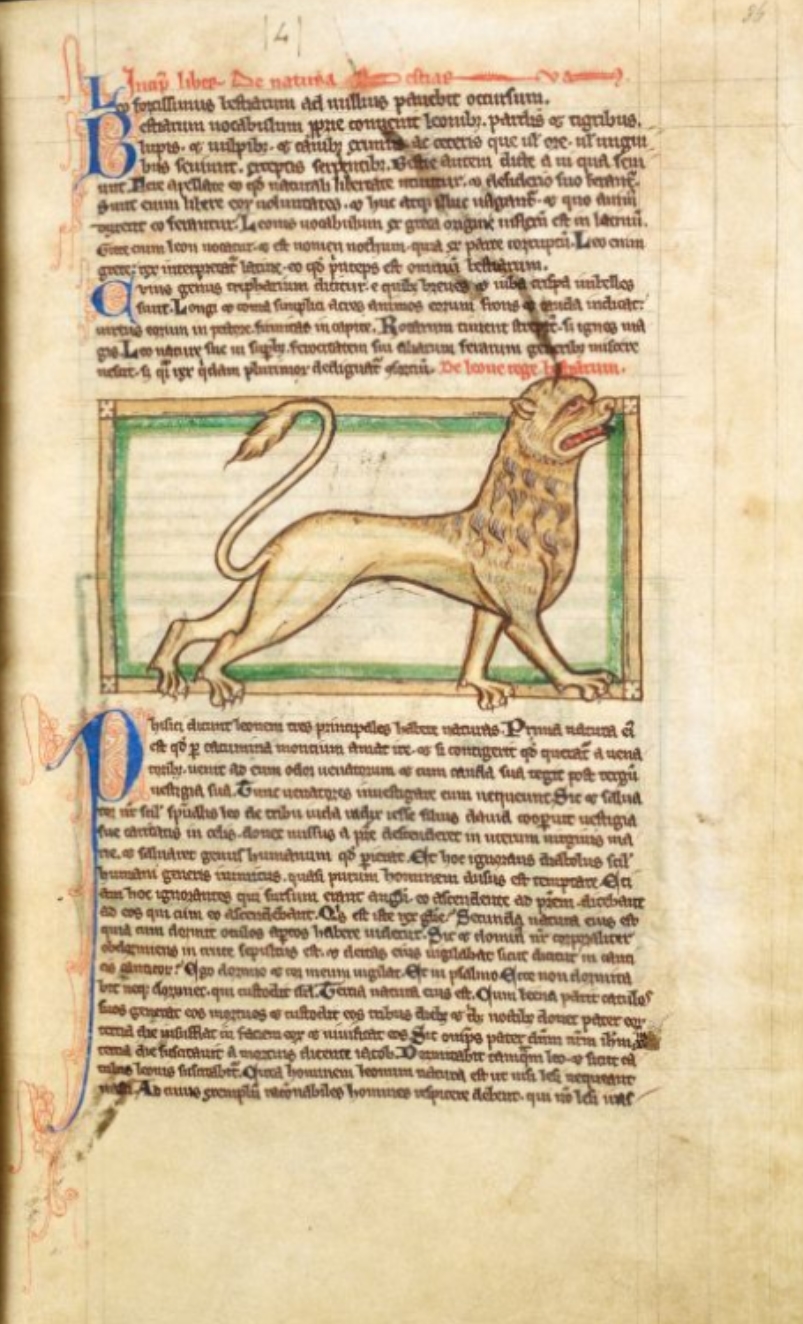 [4]
86
Incip liber De natura Bestiar
Leo fortissimus bestiarum ad nullius pavebit occursum.
Bestiarum uocabulum pprie conuenit leonibȝ. pardis ⁊ tigribus.
lupis. ⁊ uulpibȝ. ⁊ canibȝ ac ceteris que ul ore. ul ungui
bus seuiunt. exceptis serpentibȝ. Bestie autem dicte a ui qua seui
unt. appellate eo qd naturali libertate ⁊ desiderio suo ferant.
Sunt enim libere eor uoluntates. ⁊ huc atqȝ illuc uagant. ⁊ quo anim
eo feruntur. Leonis uocabulum ex greca origine inflexum est in latinū.
Grece enim leon uocatur. ⁊ est nomen nothum. quia ex parte corruptū. Leo enim
grece. rex interpretat latine. eo qd pnceps est omniū bestiarum.
Cuius genus tripharium dicitur. e quibȝ breues ⁊ iuba crispa imbelles
sunt. Longi ⁊ coma simplici acres animos eorum frons ⁊ cauda indicat.
uirtus eorum in pectore. firmitas in capite. Rotarum timent strepit. sȝ ignes ma
gis. Leo nature sue in ferocitatem sui aliarum ferarum generibȝ miscere
nescit. sȝ rex qdam De leone rege bestiarum.
Phisici dicunt leonem tres principales habere naturas. Prima natura ei
est qd p cacumina montium amat ire. ⁊ si contigerit qd querat a uena
toribȝ. uenit ad eum odor uenatorum ⁊ cum cauda sua tegit post tergū
uestigia sua. Tunc uenatores inuestigare eum nequeunt. Sic ⁊ salua
tor nr scil spualis leo de tribu iuda radix iesse filius dauid cooperuit uestigia
sue caritatis in celis. donec missus a pre descenderet in uterum uirginis ma
rie. ⁊ saluaret genus humanum qd pierat. Et hoc ignorans diabolus scil
humani generis inimicus. quasi purum hominem ausus est temptare. Eti
am hoc ignorantes qui sursum erant angli. eo ascendente ad prem. dicebant
ad eos qui cum eo ascendebant. Qis est iste rex gle. Secunda natura eius est
quia cum dormit oculos aptos habere uidetur. Sic ⁊ domin nr corporaliter
obdormiens in cruce sepultus est. ⁊ deitas eius uigilabat sicut dicitur in canti
cis canticor. Ego dormio ⁊ cor meum uigilat. Et in psalmo. Ecce non dormita
bit neqȝ dormiet. qui custodit isrl. Tertia natura eius est. Cum leena parit catulos
suos generat eos mortuos ⁊ custodit eos tribus diebȝ ⁊ noctibȝ donec pater eor
tertia die insufflat in faciem eor ⁊ uiuificat eos. Sic omps pater dnm nrm ihm
tertia die suscitauit a mortuis dicente iacob. Dormitabit tamqm leo. ⁊ sicut ca
tulus leonis suscitabit. Circa hominem leonum natura est ut nisi lesi nequeant
irasci. Ad cuius exemplū rationabiles homines respicere debent. qui no lesi iras